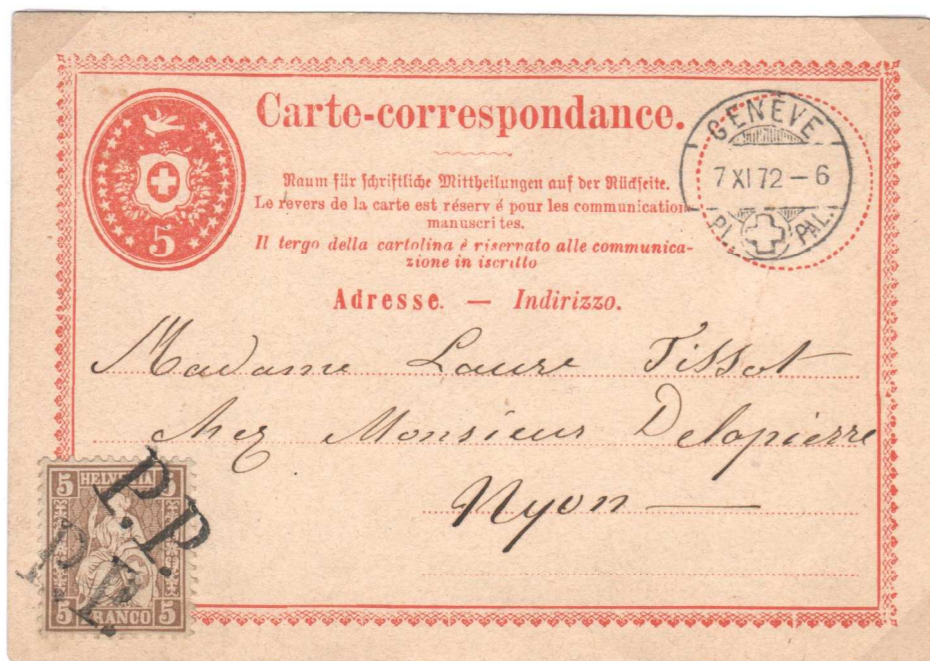 Carte-correspondance.
5
Raum für schriftliche Mittheilungen auf der Rückseite.
Le revers de la carte est réserv é pour les communication
manuscrites.
Il tergo della cartolina è riservato alle communica-
zione in iscritto
Adresse. — Indirizzo.
GENÈVE
7 XI 72 – 6
PL. PAL.
Madame Laure Tissot
chez Monsieur Delapierre
Nyon —
5 HELVETIA 5
P.P.
P.P.
5 FRANCO 5